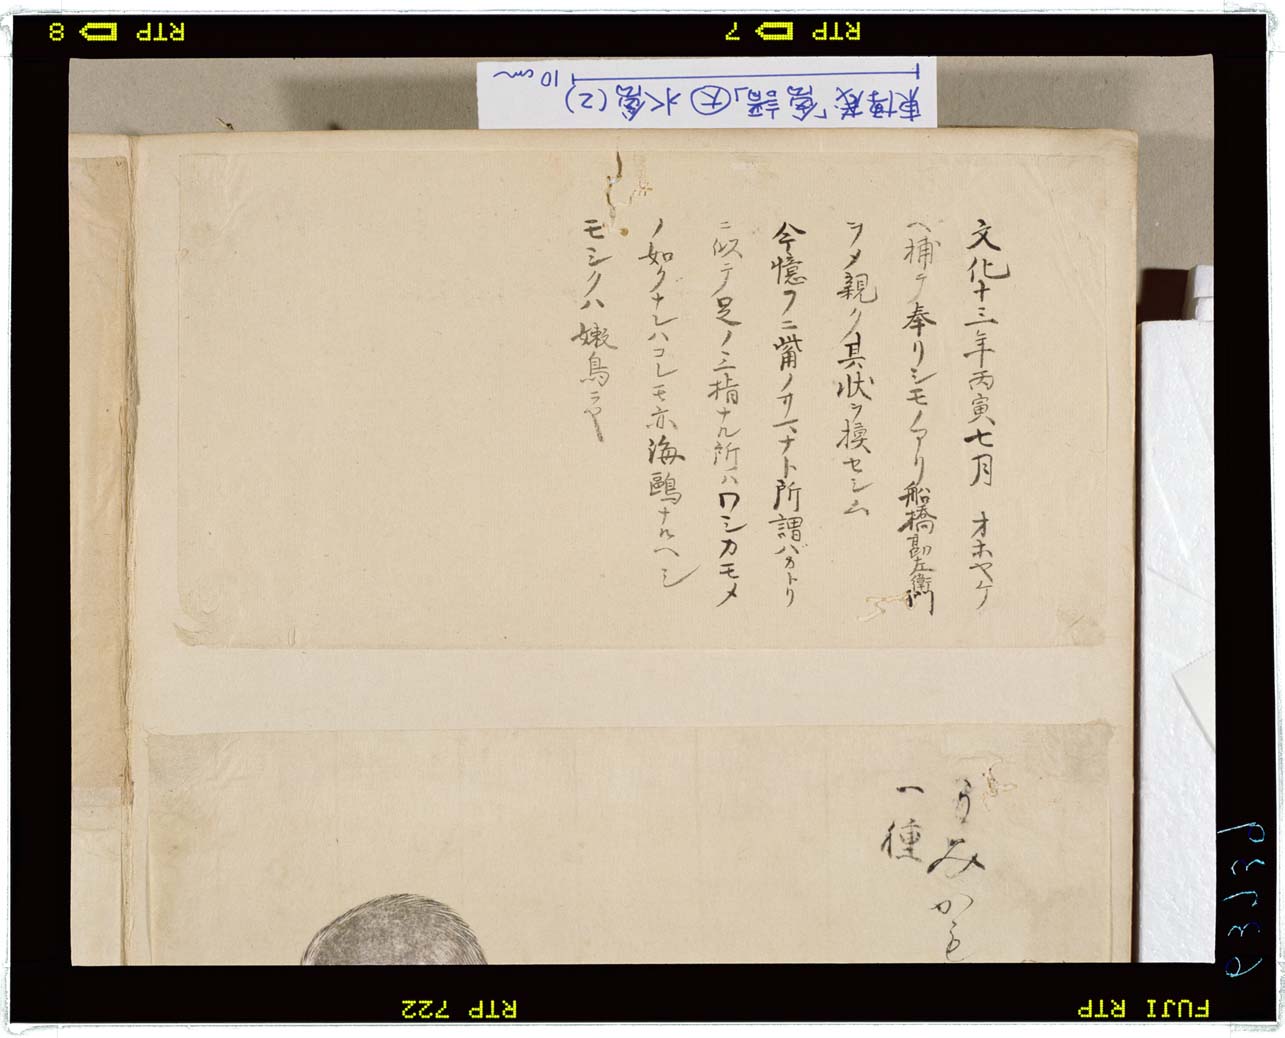 RTP 8
RTP 7
東博蔵「禽譜」大 水禽(2)
10cm
文化十三年丙寅七月 オホヤケ
ヘ捕テ奉リシモノアリ船橋勘左衛門
ヲメ親ク其状ヲ摸セシム
今憶フニ嘴ノサマナト所謂バカトリ
ニ似テ足ノ三指ナル所ハワシカモメ
ノ如クナレハコレモ亦海鷗ナルヘシ
モシクハ嫩鳥ニヤ
うみかも
一種
RTP 722
FUJI RTP